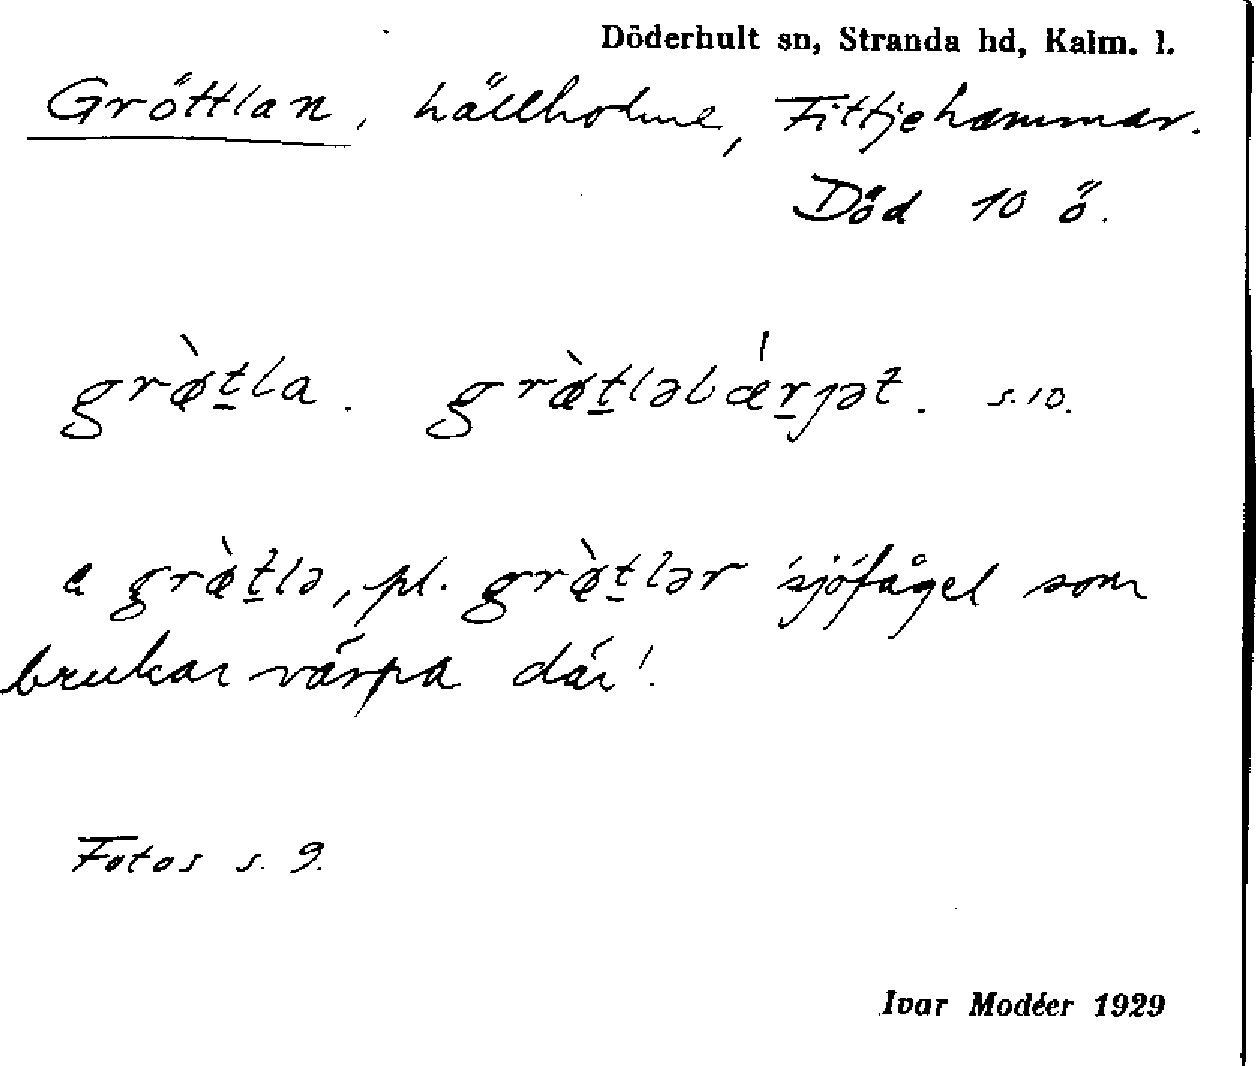 Döderhult sn, Stranda hd, Kalm. l.
Gröttlan, hällholme, Fittjehammar.
Död 10 ö.
grø̀t̲la. grø̀t̲ləbǽr̲jət. s. 10.
a grø̀t̲lə, pl. grø̀t̲lər 'sjöfågel som
brukar värpa där'.
Fotos s. 9.
Ivar Modéer 1929